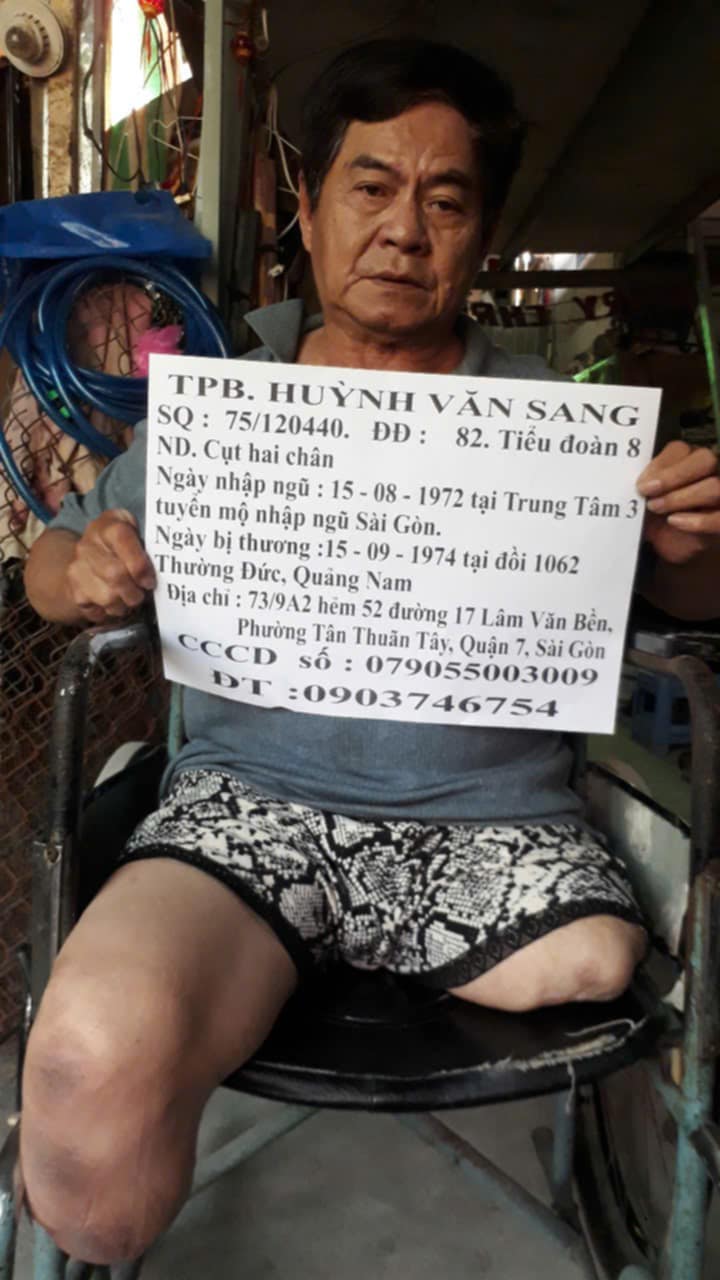 TPB. HUỲNH VĂN SANG
SQ : 75/120440. ĐĐ : 82. Tiểu đoàn 8
ND. Cụt hai chân
Ngày nhập ngũ : 15 - 08 - 1972 tại Trung Tâm 3
tuyển mộ nhập ngũ Sài Gòn.
Ngày bị thương :15 - 09 - 1974 tại đồi 1062
Thường Đức, Quảng Nam
Địa chỉ : 73/9A2 hẻm 52 đường 17 Lâm Văn Bền,
Phường Tân Thuãn Tây, Quận 7, Sài Gòn
CCCD số : 079055003009
ĐT :0903746754